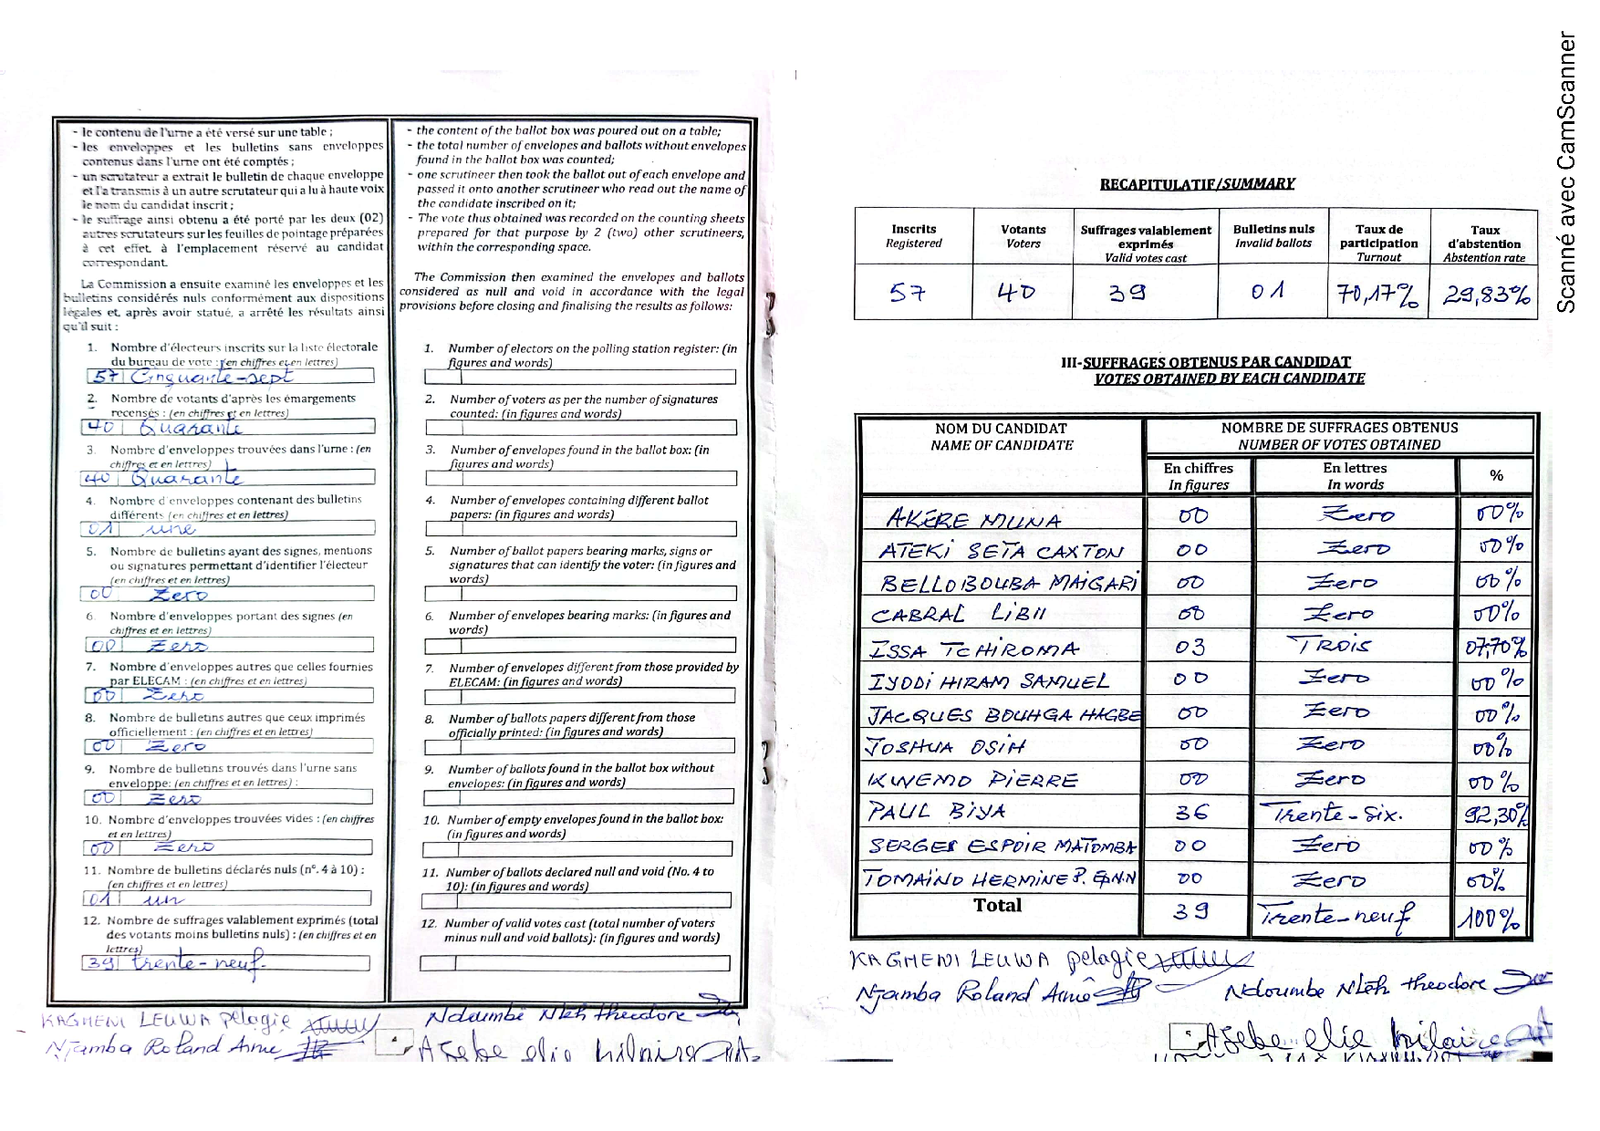 - le contenu de l'urne a été versé sur une table ;
- les enveloppes et les bulletins sans enveloppes
contenus dans l'urne ont été comptés ;
- un scrutateur a extrait le bulletin de chaque enveloppe
et l'a transmis à un autre scrutateur qui a lu à haute voix
le nom du candidat inscrit ;
- le suffrage ainsi obtenu a été porté par les deux (02)
autres scrutateurs sur les feuilles de pointage préparées
à cet effet, à l'emplacement réservé au candidat
correspondant.
La Commission a ensuite examiné les enveloppes et les
bulletins considérés nuls conformément aux dispositions
légales et, après avoir statué, a arrêté les résultats ainsi
qu'il suit :
1. Nombre d'électeurs inscrits sur la liste électorale
du bureau de vote : (en chiffres et en lettres)
57 Cinquante-sept
2. Nombre de votants d'après les émargements
recensés : (en chiffres et en lettres)
40 Quarante
3. Nombre d'enveloppes trouvées dans l'urne : (en
chiffres et en lettres)
40 Quarante
4. Nombre d'enveloppes contenant des bulletins
différents : (en chiffres et en lettres)
01 une
5. Nombre de bulletins ayant des signes, mentions
ou signatures permettant d'identifier l'électeur
(en chiffres et en lettres)
00 Zero
6. Nombre d'enveloppes portant des signes (en
chiffres et en lettres)
00 Zero
7. Nombre d'enveloppes autres que celles fournies
par ELECAM : (en chiffres et en lettres)
00 Zero
8. Nombre de bulletins autres que ceux imprimés
officiellement : (en chiffres et en lettres)
00 Zero
9. Nombre de bulletins trouvés dans l'urne sans
enveloppe: (en chiffres et en lettres) :
00 Zero
10. Nombre d'enveloppes trouvées vides : (en chiffres
et en lettres)
00 Zero
11. Nombre de bulletins déclarés nuls (n°. 4 à 10) :
(en chiffres et en lettres)
01 un
12. Nombre de suffrages valablement exprimés (total
des votants moins bulletins nuls) : (en chiffres et en
lettres)
39 trente-neuf.
- the content of the ballot box was poured out on a table;
- the total number of envelopes and ballots without envelopes
found in the ballot box was counted;
- one scrutineer then took the ballot out of each envelope and
passed it onto another scrutineer who read out the name of
the candidate inscribed on it;
- The vote thus obtained was recorded on the counting sheets
prepared for that purpose by 2 (two) other scrutineers,
within the corresponding space.
The Commission then examined the envelopes and ballots
considered as null and void in accordance with the legal
provisions before closing and finalising the results as follows:
1. Number of electors on the polling station register: (in
figures and words)
2. Number of voters as per the number of signatures
counted: (in figures and words)
3. Number of envelopes found in the ballot box: (in
figures and words)
4. Number of envelopes containing different ballot
papers: (in figures and words)
5. Number of ballot papers bearing marks, signs or
signatures that can identify the voter: (in figures and
words)
6. Number of envelopes bearing marks: (in figures and
words)
7. Number of envelopes different from those provided by
ELECAM: (in figures and words)
8. Number of ballots papers different from those
officially printed: (in figures and words)
9. Number of ballots found in the ballot box without
envelopes: (in figures and words)
10. Number of empty envelopes found in the ballot box:
(in figures and words)
11. Number of ballots declared null and void (No. 4 to
10): (in figures and words)
12. Number of valid votes cast (total number of voters
minus null and void ballots): (in figures and words)
KAGHENI LEUWA pelagie
Ndoumbe Nteh theodore
Njamba Roland Aimé
Atebe elie hilaire
RECAPITULATIF/SUMMARY
Inscrits Registered
Votants Voters
Suffrages valablement exprimés Valid votes cast
Bulletins nuls Invalid ballots
Taux de participation Turnout
Taux d'abstention Abstention rate
57 40 39 01 70,17% 29,83%
III-SUFFRAGES OBTENUS PAR CANDIDAT
VOTES OBTAINED BY EACH CANDIDATE
NOM DU CANDIDAT NOMBRE DE SUFFRAGES OBTENUS
NAME OF CANDIDATE NUMBER OF VOTES OBTAINED
En chiffres En lettres %
In figures In words
AKERE MUNA 00 Zero 00%
ATEKI SETA CAXTON 00 Zero 00%
BELLO BOUBA MAIGARI 00 Zero 00%
CABRAL LIBII 00 Zero 00%
ISSA TCHIROMA 03 TROIS 07,70%
IYODI HIRAM SAMUEL 00 Zero 00%
JACQUES BOUHGA HAGBE 00 Zero 00%
JOSHUA OSIH 00 Zero 00%
KWEMO PIERRE 00 Zero 00%
PAUL BIYA 36 Trente-six. 92,30%
SERGES ESPOIR MATOMBA 00 Zero 00%
TOMAINO HERMINE P. EPNN 00 Zero 00%
Total 39 Trente-neuf 100%
KAGHENI LEUWA pelagie
Njamba Roland Aimé
Ndoumbe Nteh theodore
Atebe elie hilaire
Scanné avec CamScanner